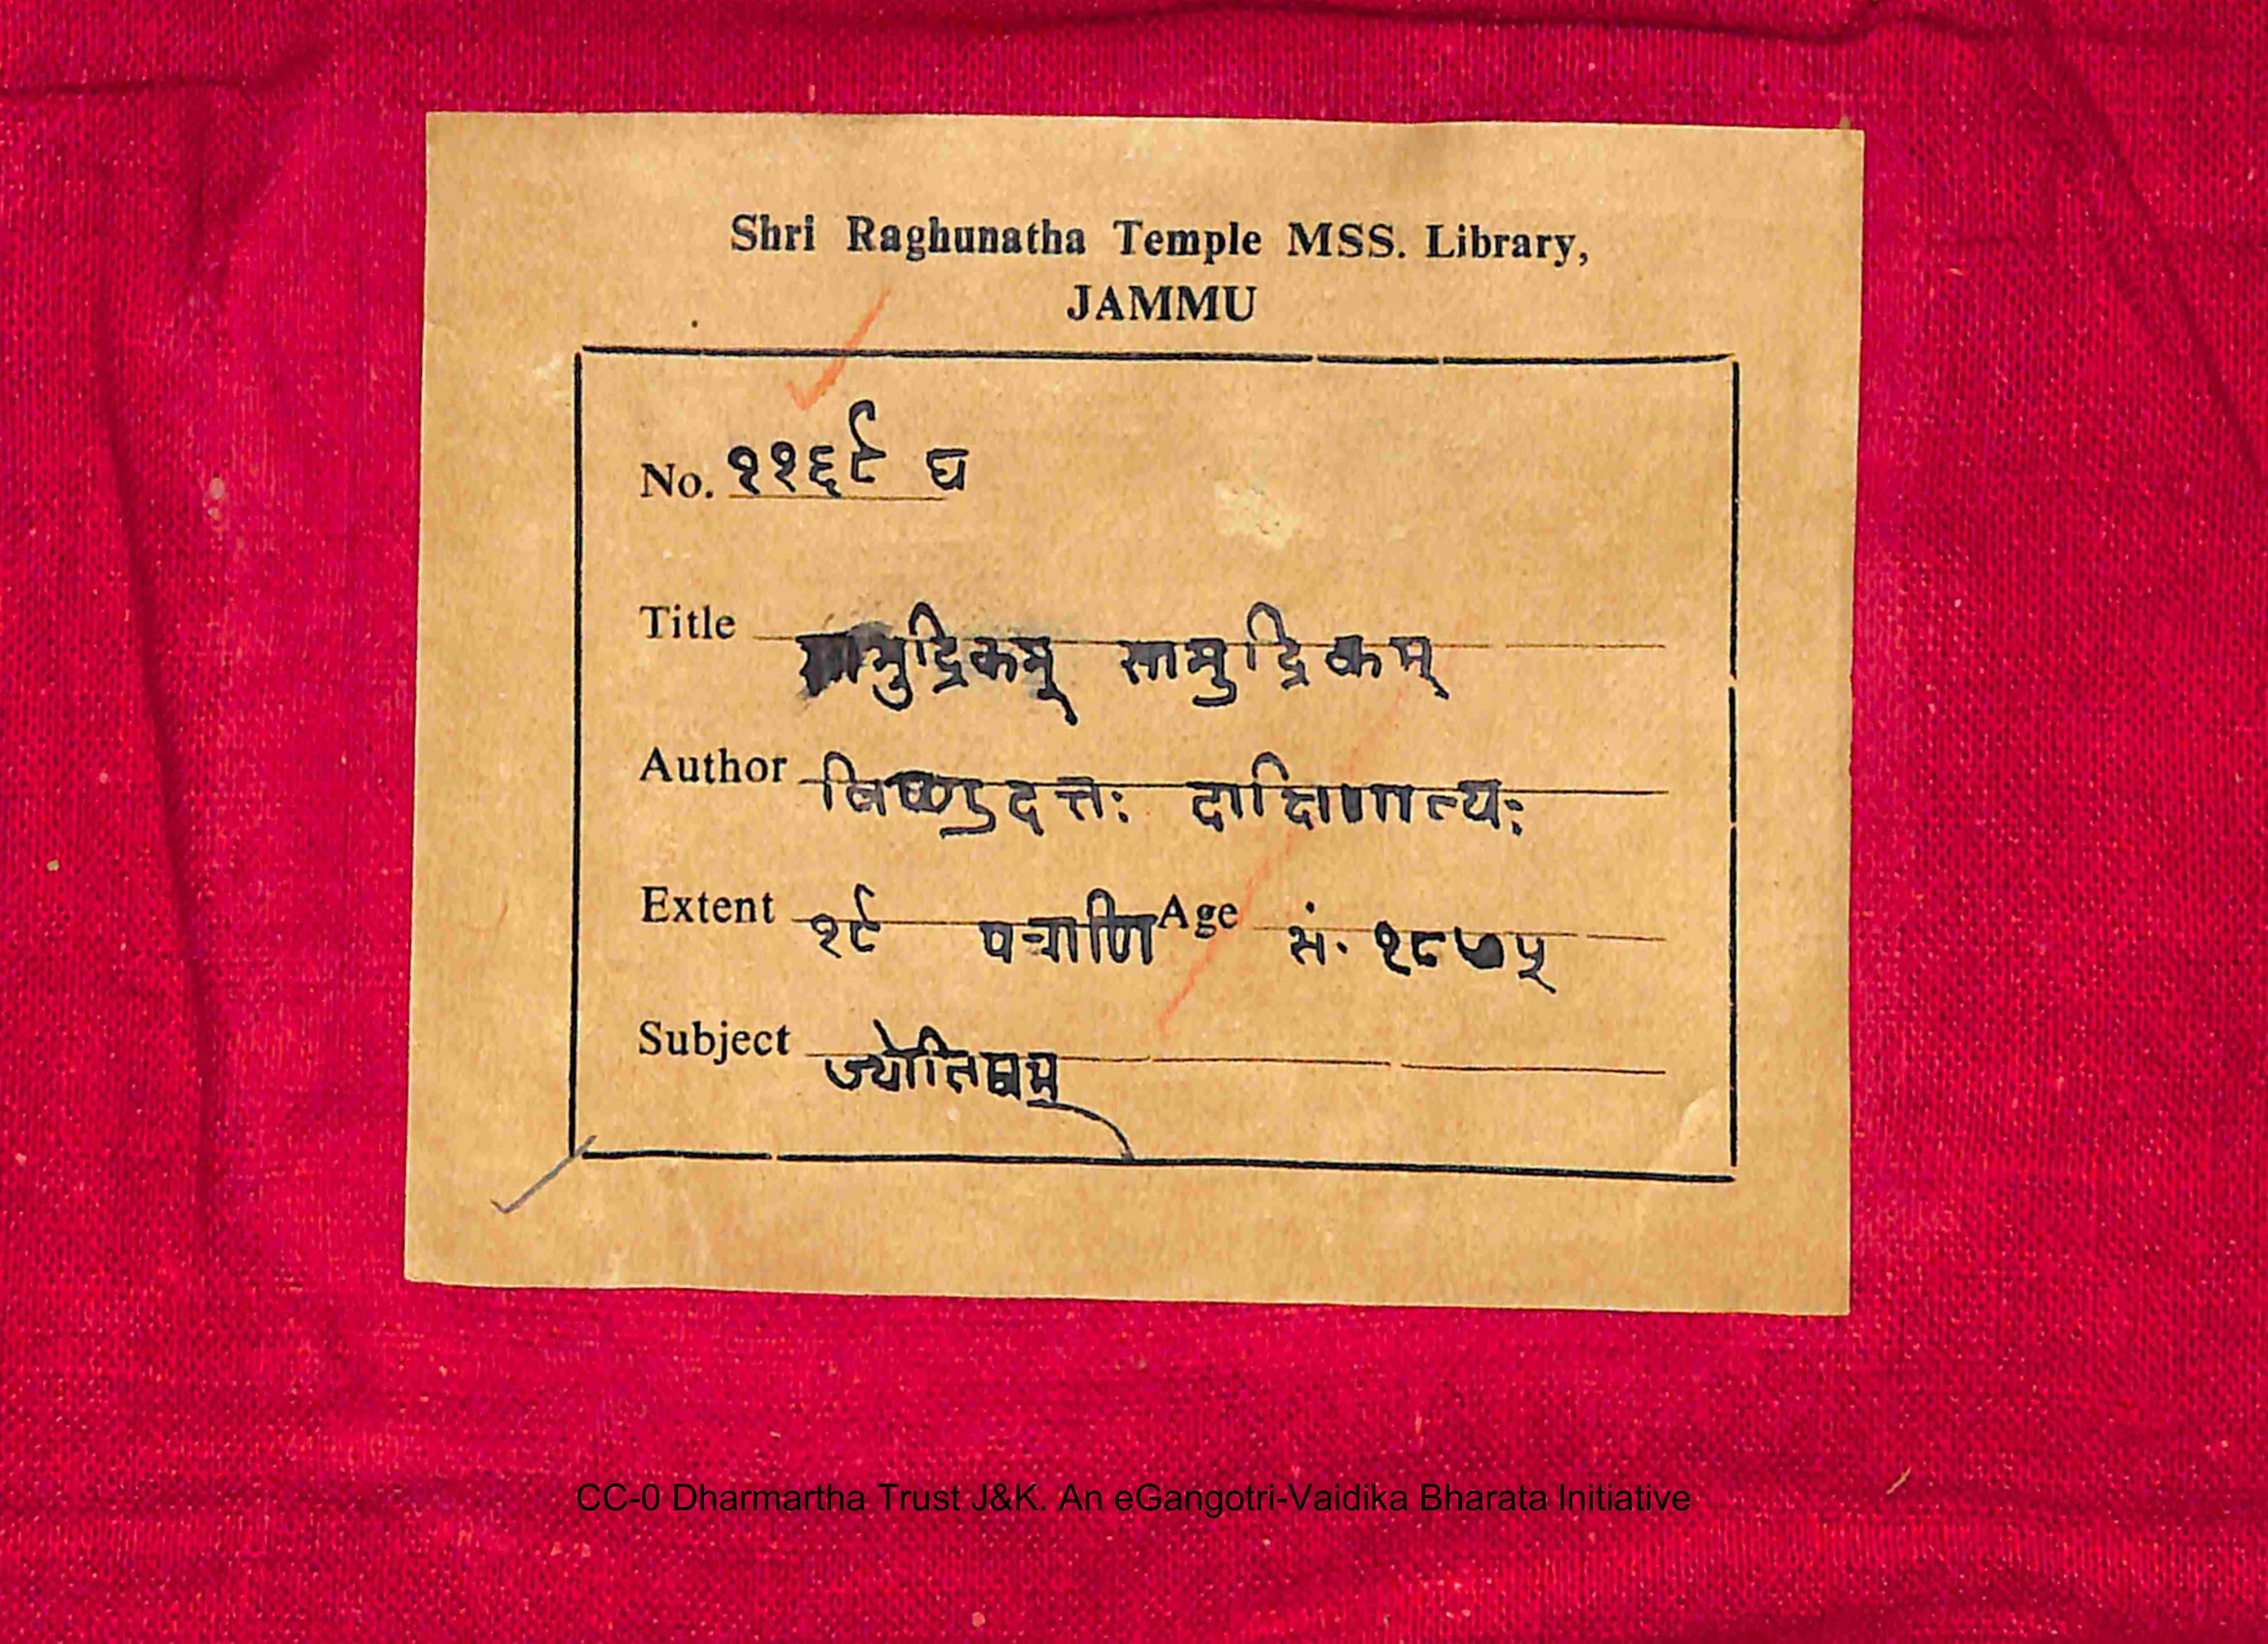 Shri Raghunatha Temple MSS. Library,
JAMMU
No. ११६९ घ
Title सामुद्रिकम् सामुद्रिकम्
Author विष्णुदत्तः दाक्षिणात्यः
Extent १९ पत्राणि Age सं. १८७५
Subject ज्योतिषम्
CC-0 Dharmartha Trust J&K. An eGangotri-Vaidika Bharata Initiative